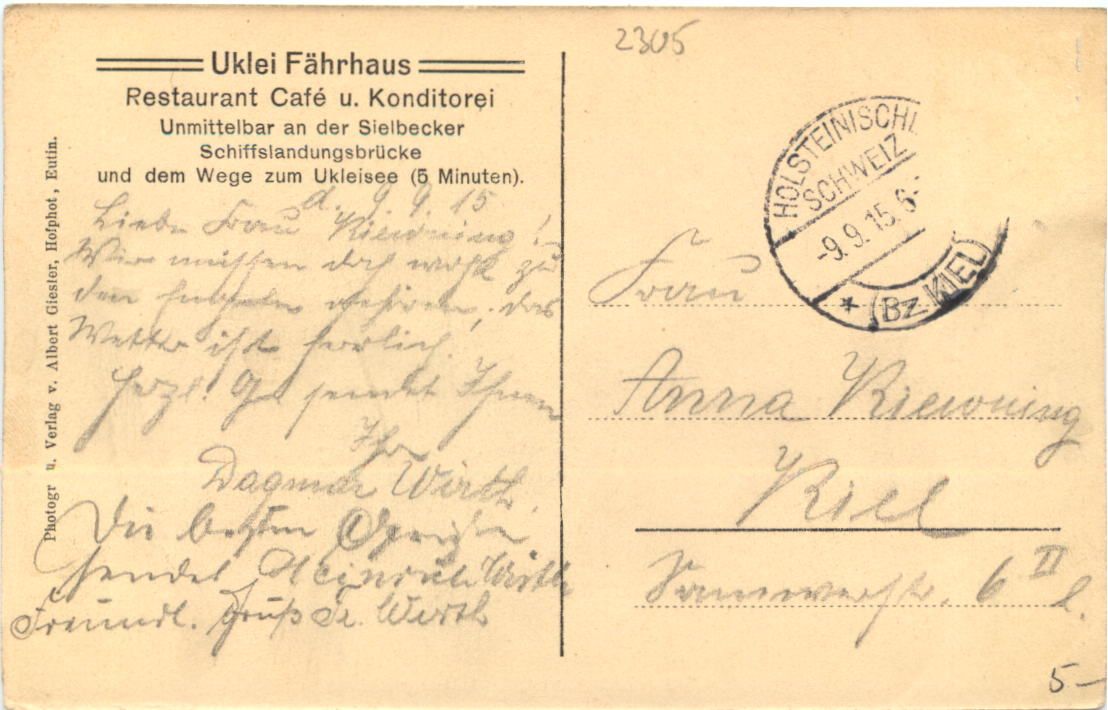 2305
Uklei Fährhaus
Restaurant Café u. Konditorei
Unmittelbar an der Sielbecker
Schiffslandungsbrücke
und dem Wege zum Ukleisee (5 Minuten).
Photogr u. Verlag v. Albert Giester, Hofphot, Eutin.
d. 9 9 15
Liebe Frau Kiewning!
Wir müssen doch wohl zu
den gehören, das
Wetter ist herrlich.
Herzl. Gr. sendet Ihnen
Ihre
Dagmar Wirth.
Die besten Grüße
sendet Heinrich Wirth
Freundl. Gruß Fr. Wirth
HOLSTEINISCHE
SCHWEIZ
-9.9.15.6-
* (Bz. KIEL)
Frau
Anna Kiewning
Kiel
6 II l.
5-